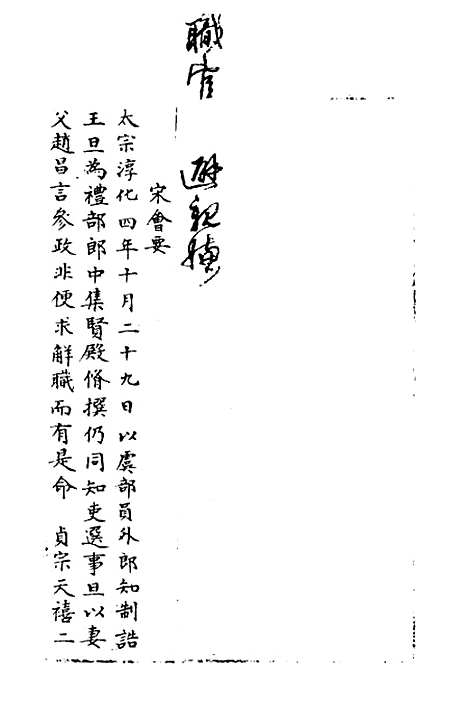 職官 避親嫌
宋會要
太宗淳化四年十月二十九日以虞部員外郎知制誥
王旦為禮部郎中集賢殿脩撰仍同知吏選事旦以妻
父趙昌言參政非便求解職而有是命 貞宗天禧二